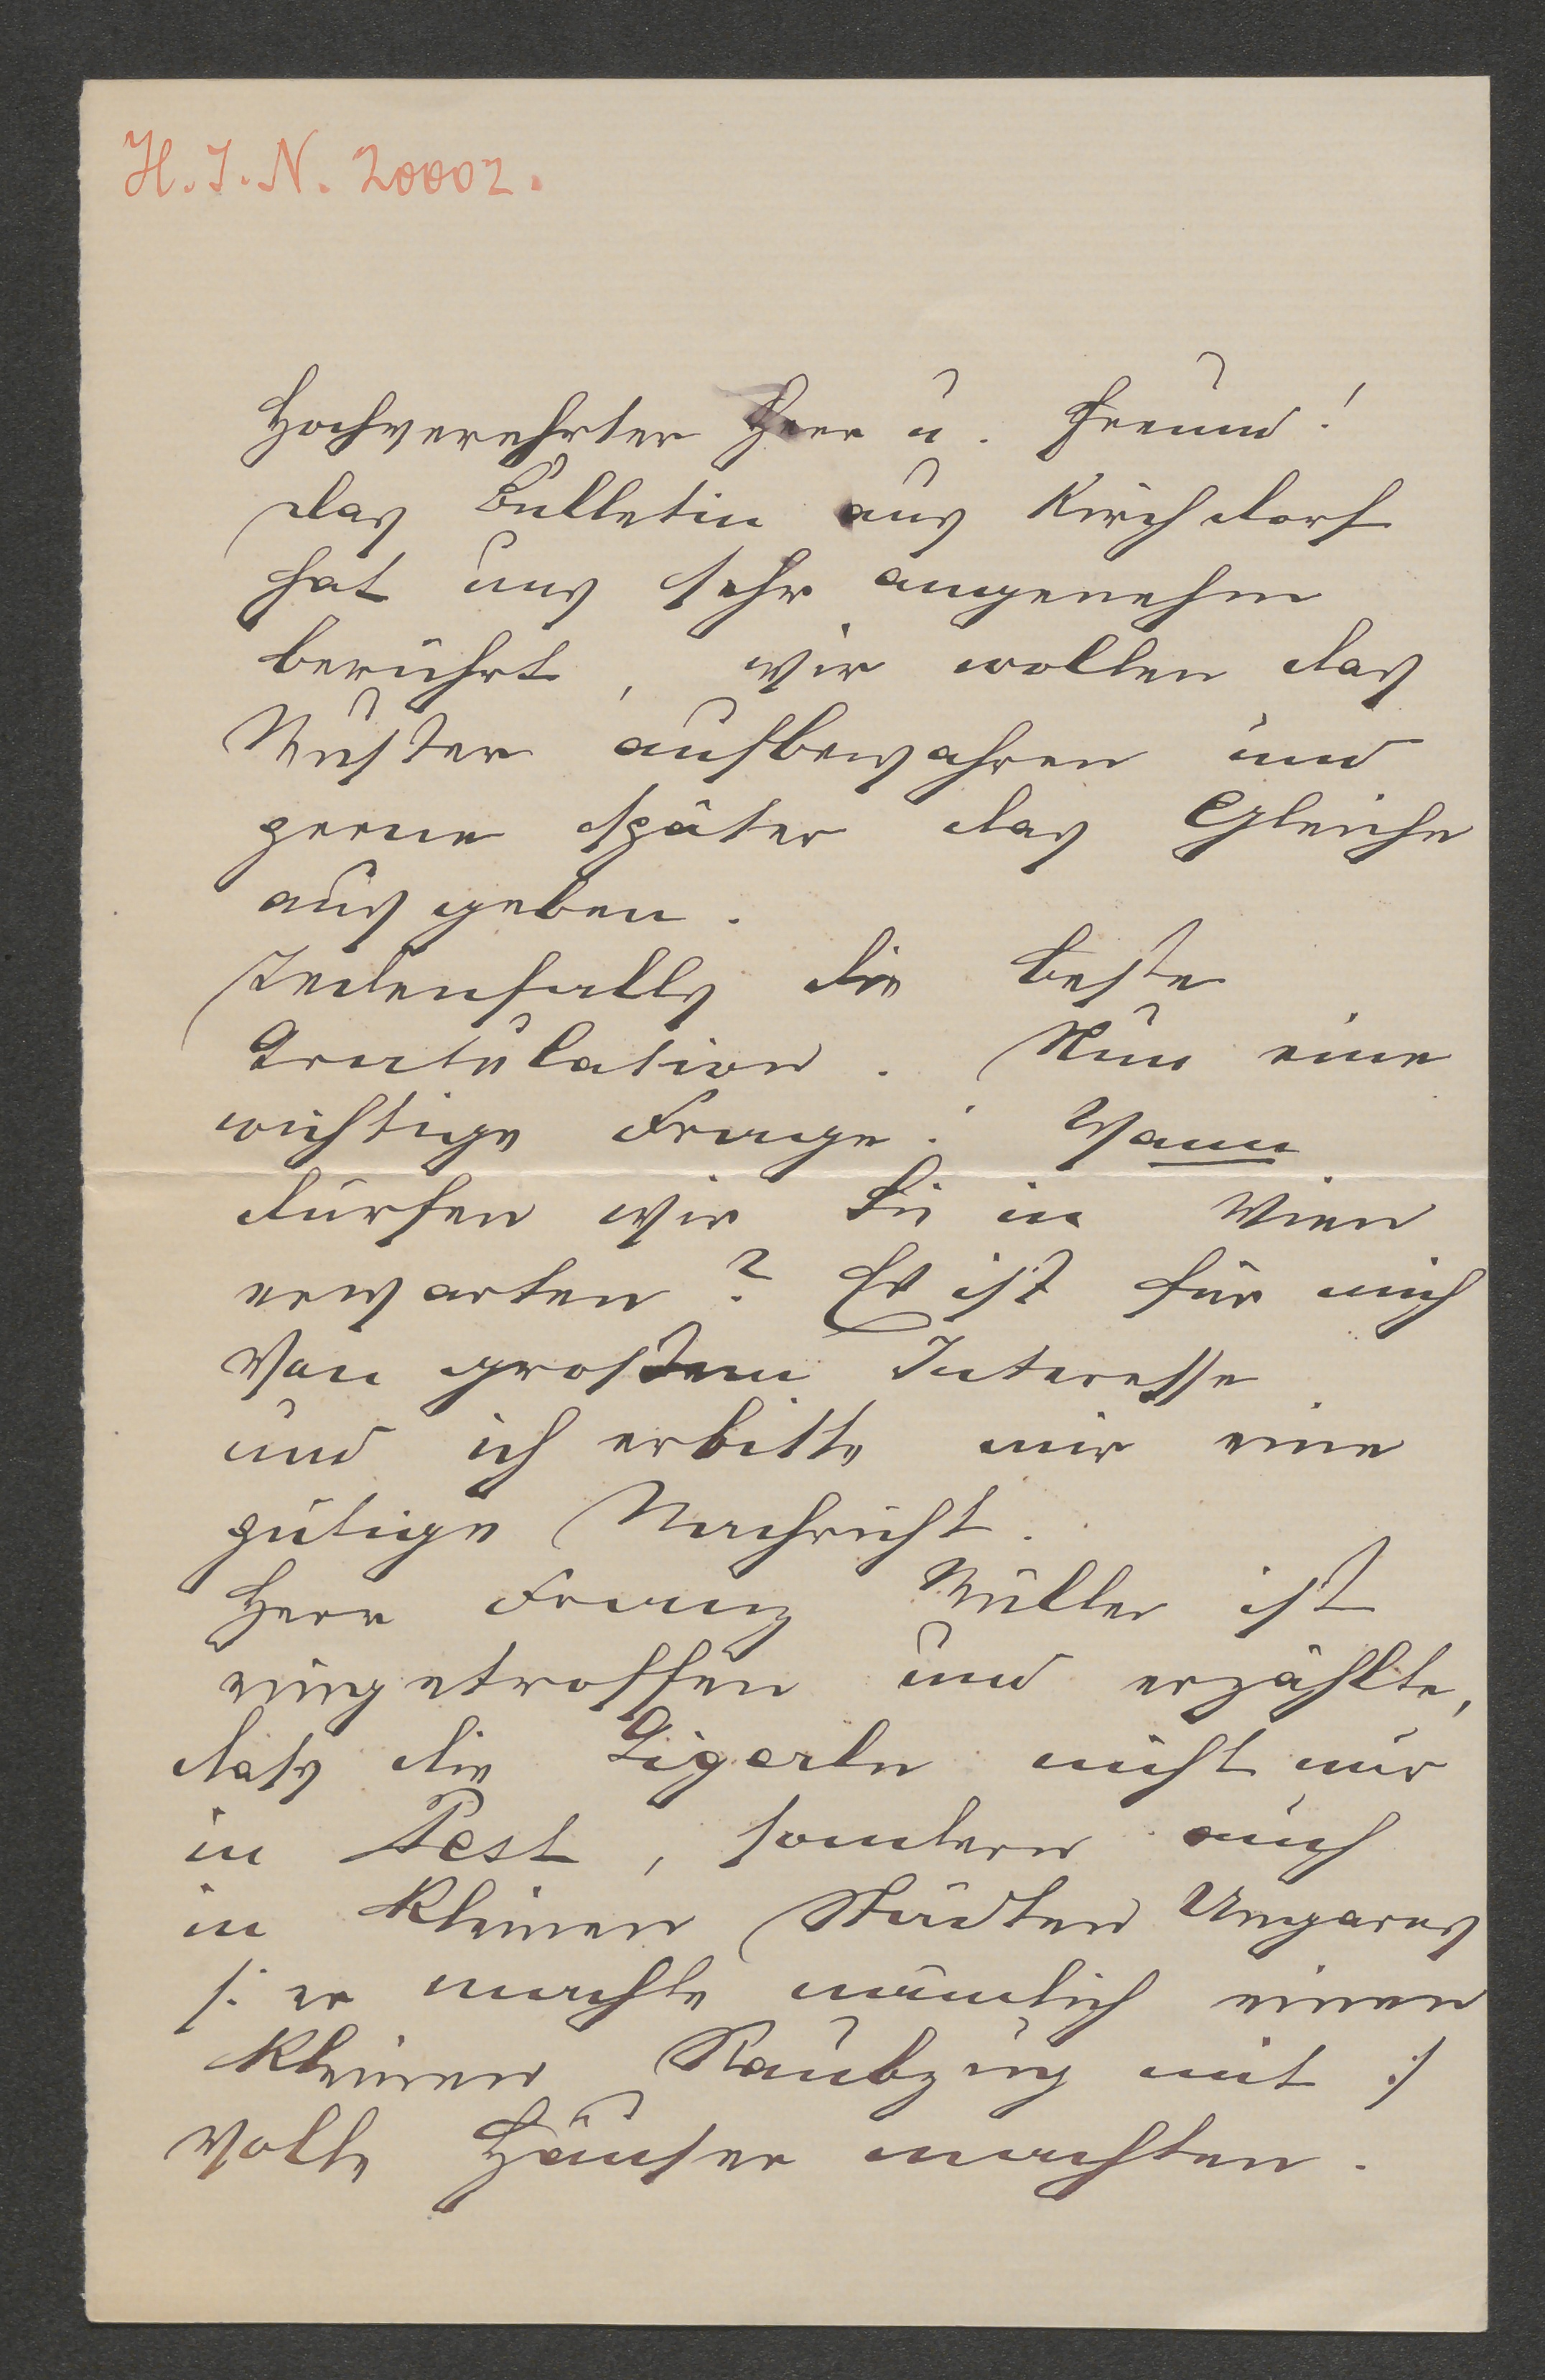 H. I. N. 20002.
Hochverehrter Herr u. Freund!
Das Bulletin aus Kirchdorf
hat uns sehr angenehm
berührt, wir wollen das
Muster aufbewahren und
gerne später das Gleiche
ausgeben.
Jedenfalls die beste
Gratulation. Nun eine
wichtige Frage: Wann
dürfen wir Sie in Wien
erwarten? Es ist für mich
von großem Interesse
und ich erbitte mir eine
gütige Nachricht.
Herr Franz Müller ist
eingetroffen und erzählte,
daß die Gigerln nicht nur
in Pest, sondern auch
in kleinen Städten Ungarns
/: er machte nämlich einen
kleinen Raubzug mit :/
volle Häuser machten.